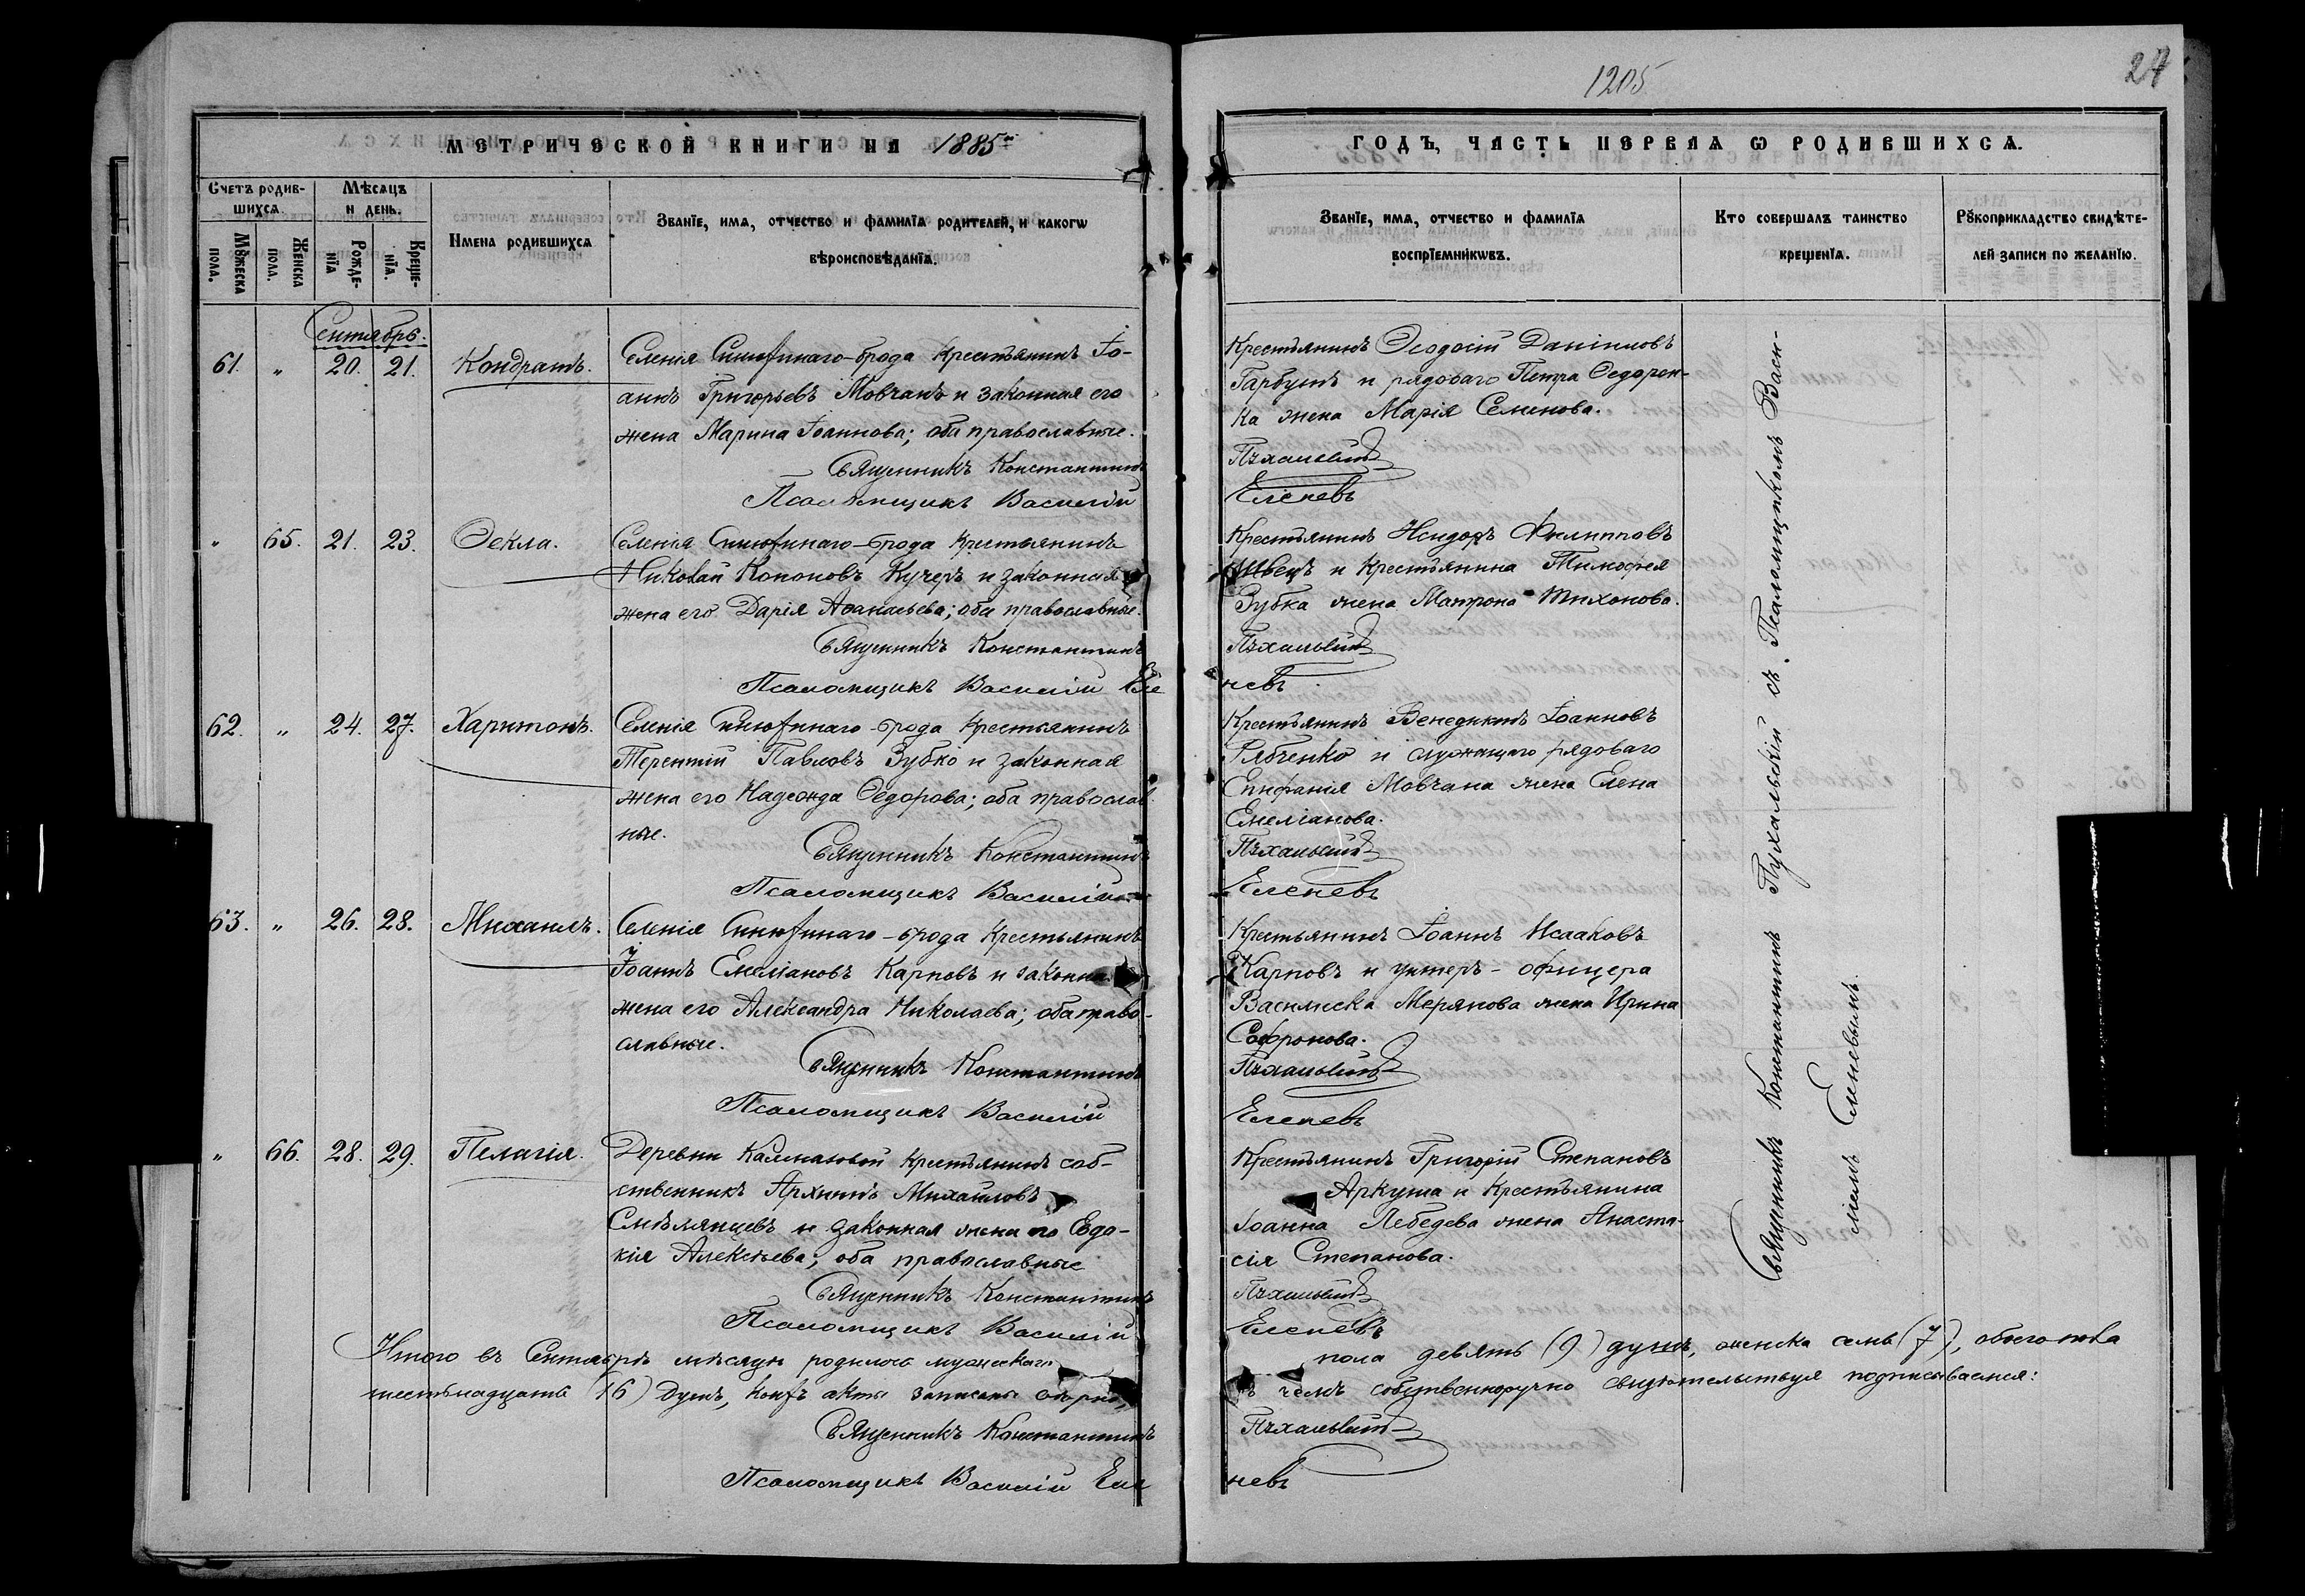 1205
27
МЕТРИЧЕСКОЙ КНИГИ НА 1885
ГОДЪ, ЧАСТЬ ПЕРВАЯ Ѡ РОДИВШИХСѦ.
Счетъ родив-
шихсѧ.
Мѣсѧцъ
и день.
Мꙋжеска
пола.
Женска
пола.
Рожде-
нїѧ
Креще-
нїѧ.
Имена родившихсѧ
Званїе, имѧ, отчество и фамилїѧ родителей, и какогѡ
вѣроисповѣданїѧ.
Званїе, имѧ, отчество и фамилїѧ
воспрїемникѡвъ.
Кто совершалъ таинство
крещенїѧ.
Рꙋкоприкладство свидѣте-
лей записи по желанїю.
Сентябрь.
61. " 20. 21. Кондратъ.
Селенія Синюхинаго-брода Крестьянинъ Іо-
аннъ Григорьевъ Мовчанъ и законная его
жена Марина Іоаннова; оба православные.
Священникъ Константинъ
Псаломщикъ Василій
Крестьянинъ Ѳеодосій Даніиловъ
Гарбузъ и рядоваго Петра Ѳедорен-
ка жена Марія Семенова.
Пухальскій
Еленевъ
" 65. 21. 23. Ѳекла.
Селенія Синюхинаго-брода Крестьянинъ
Николай Кононовъ Кучеръ и законная
жена его Дарія Аѳанасьева; оба православные.
Священникъ Константинъ
Псаломщикъ Василій Еле
Крестьянинъ Исидоръ Филипповъ
Швецъ и Крестьянина Тимофея
Зубка жена Матрона Тихонова.
Пухальскій
невъ
62. " 24. 27. Харитонъ.
Селенія Синюхинаго-брода Крестьянинъ
Терентій Павловъ Зубко и законная
жена его Надежда Ѳедорова; оба православ
ные.
Священникъ Константинъ
Псаломщикъ Василій
Крестьянинъ Венедиктъ Іоанновъ
Рябченко и служащаго рядоваго
Епифанія Мовчана жена Елена
Емеліанова.
Пухальскій
Еленевъ
63. " 26. 28. Михаилъ.
Селенія Синюхинаго-брода Крестьянинъ
Іоаннъ Емеліановъ Карповъ и законна
жена его Александра Николаева; оба право-
славные.
Священникъ Константинъ
Псаломщикъ Василій
Крестьянинъ Іоаннъ Исааковъ
Карповъ и унтеръ-офицера
Василиска Мерянова жена Ирина
Софронова.
Пухальскій
Еленевъ
" 66. 28. 29. Пелагія.
Деревни Калмазовой Крестьянинъ соб-
ственникъ Архипъ Михайловъ
Смѣлянцевъ и законная жена его Евдо-
кія Алексѣева; оба православные
Священникъ Константинъ
Псаломщикъ Василій
Крестьянинъ Григорій Степановъ
Аркуша и Крестьянина
Іоанна Лебедева жена Анаста-
сія Степанова.
Пухальскій
Еленевъ
Священникъ Константинъ Пухальскій съ Псаломщикомъ Васи-
ліемъ Еленевымъ.
Итого въ Сентябрѣ мѣсяцѣ родилось мужескаго
пола девять (9) душъ, женска семь (7), обоего пола
шестьнадцать (16) душъ, коихъ акты записаны вѣрно,
въ чемъ собственноручно свидѣтельствуя подписываемся:
Священникъ Константинъ
Пухальскій
Псаломщикъ Василій Еле
невъ